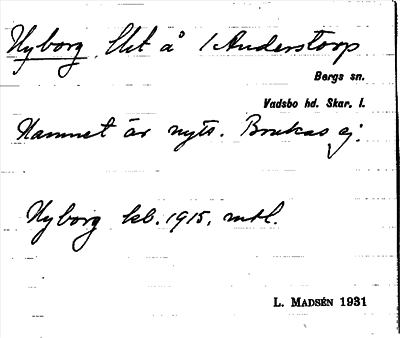 Nyborg. Lht å 1 Anderstorp
Bergs sn.
Vadsbo hd. Skar. l.
Namnet är nytt. Brukas ej.
Nyborg kb. 1915, mtl.
L. MADSÉN 1931